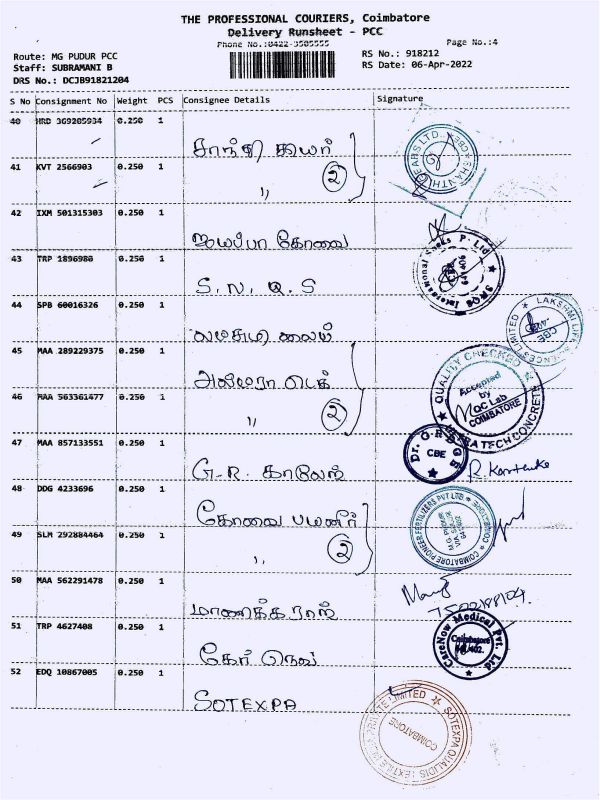 THE PROFESSIONAL COURIERS, Coimbatore
Delivery Runsheet - PCC
Phone No.:0422-3505555
Page No.:4
Route: MG PUDUR PCC
Staff: SUBRAMANI B
DRS No.: DCJB91821204
RS No.: 918212
RS Date: 06-Apr-2022
S No Consignment No Weight PCS Consignee Details Signature
40 HRD 369205934 0.250 1
சாந்தி கியர்
41 KVT 2566903 0.250 1
" 2
42 IXM 501315303 0.250 1
ஐயப்பா கோவை
43 TRP 1896980 0.250 1
S. N. Q. S
SNQS International Socks P. Ltd
CBE
641 406
44 SPB 60016326 0.250 1
லட்சுமி லைப்
LAKSHMI LIFE SCIENCES LIMITED
CBE
45 MAA 289229375 0.250 1
அல்ட்ரா டெக்
QUALITY CHECKED
Accepted
by
QC Lab
COIMBATORE
ULTRA TECH CONCRETE
46 MAA 563361477 0.250 1
" 2
47 MAA 857133551 0.250 1
G.R. காலேஜ்
CBE
48 DDG 4233696 0.250 1
கோவை பயனீர்
COIMBATORE PIONEER FERTILIZERS PVT LTD.
49 SLM 292884464 0.250 1
" 2
50 MAA 562291478 0.250 1
மாணிக்க ராஜ்
51 TRP 4627408 0.250 1
கேர் நௌ
CareNow Medical Pvt. Ltd
Coimbatore
641 402.
52 EDQ 10867005 0.250 1
SOTEXPA
SOTEXPA QUALIDIS TEXTILE INDIA PRIVATE LIMITED
COIMBATORE